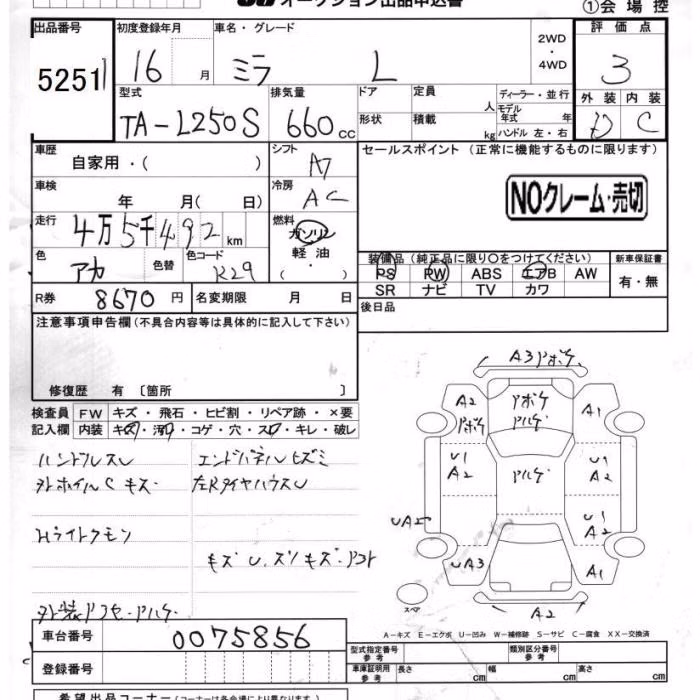 オークション出品申込書 ①会場控
出品番号 初度登録年月 車名・グレード 2WD ・ 4WD 評価点
5251 16 月 ミラ L 3
型式 排気量 ドア 定員 人 ディーラー・並行 外装 内装
TA-L250S 660 cc 形状 積載 kg モデル年式 年 ハンドル 左・右 D C
車歴 自家用・( ) シフト A7 セールスポイント (正常に機能するものに限ります)
車検 年 月( 日) 冷房 AC NOクレーム・売切
走行 4万5千492 km 燃料 ガソリン 軽油 ( ・ )
色 アカ 色替 色コード R29 装備品(純正品に限り○をつけてください) 新車保証書
PS PW ABS エアB AW 有・無
SR ナビ TV カワ
R券 8670 円 名変期限 月 日 後日品
注意事項申告欄(不具合内容等は具体的に記入して下さい)
修復歴 有 〔箇所 〕
検査員 FW キズ・飛石・ヒビ割・リペア跡・×要
記入欄 内装 キズ・汚れ・コゲ・穴・スレ・キレ・破レ
ハンドルスレ エンドパネルヒズミ
外ホイルC キズ 左Rタイヤハウスu
Hライトクモリ
キズ U.スリキズ.
A3
A2 A1
アルゲ
U1 A2 U1 A2
UA2 U1 A2
UA3 A1
スペア A2
A-キズ E-エクボ U-凹み W-補修跡 S-サビ C-腐食 XX-交換済
車台番号 0075856 型式指定番号 参考 類別区分番号 参考
登録番号 車庫証明用 参考 長さ cm 幅 cm 高さ cm
希望出品コーナー(コーナーは各会場により異なります。)